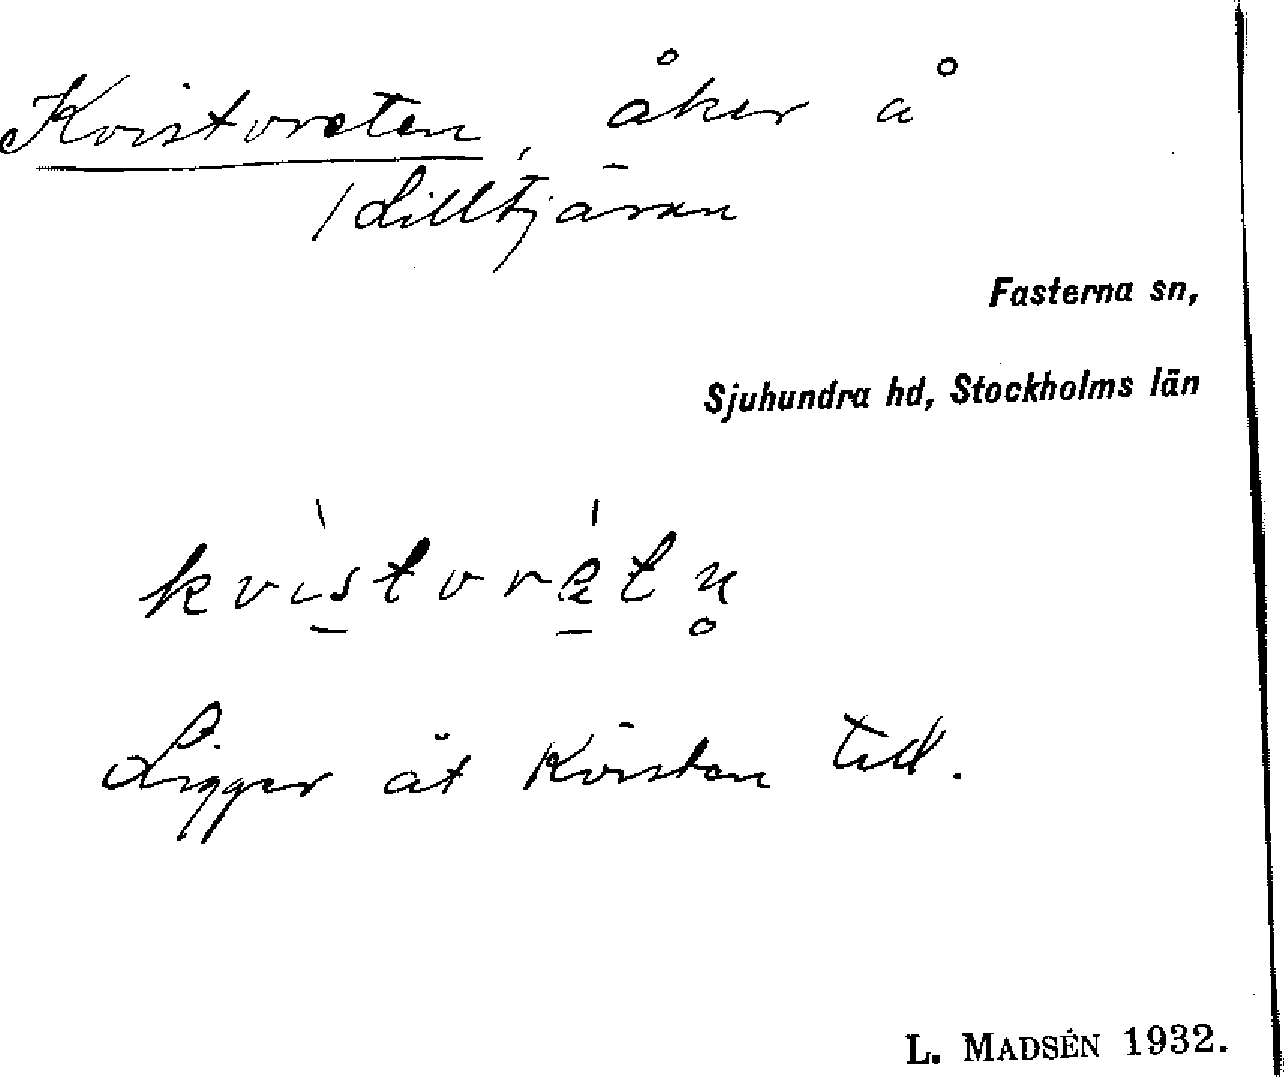 Kvistvreten, åker å
/Lilltjäran
Fasterna sn,
Sjuhundra hd, Stockholms län
kvistvretn̥
Ligger åt Kvisten till.
L. MADSÉN 1932.